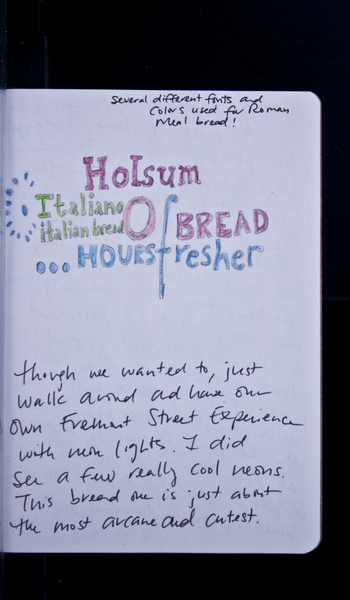 Several different fonts and
Colors used for Roman
Meal bread!
Holsum
Italiano
italian bread
Of BREAD
...HOURS fresher
though we wanted to, just
walk around and have our
own Fremont Street Experience
with neon lights. I did
see a few really cool neons.
This bread one is just about
the most arcane and cutest.